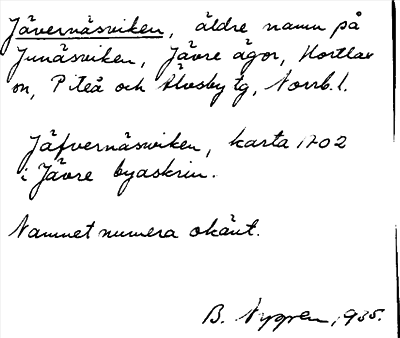 Jävernäsviken, äldre namn på
Junäsviken, Jävre ägor, Hortlax
sn, Piteå och Älvsby tg, Norrb. l.
Jäfvernäsviken, karta 1702
i Jävre byaskrin.
Namnet numera okänt.
B. Nygren, 1935.